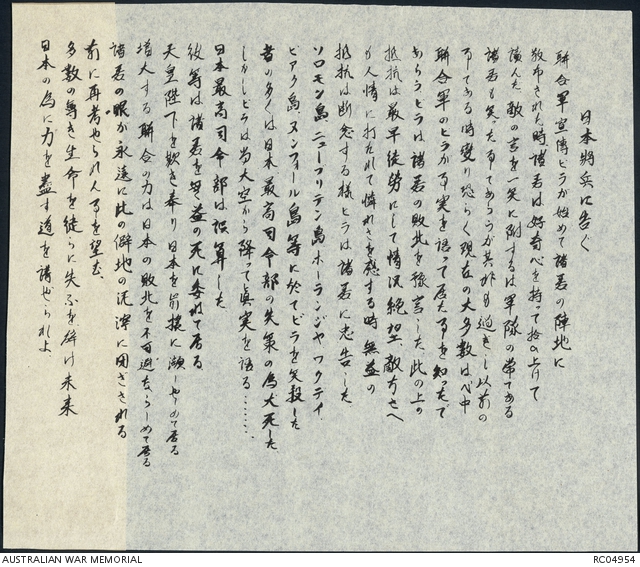 日本将兵に告ぐ
聯合軍宣傳ビラが始めて諸君の陣地に
散布された時諸君は好奇心を持って拾ひ上げて
讀んだ 敵の言を一笑に附するは軍隊の常である
諸君も笑った事であらうが其れも過ぎし以前の
事である 時變り恐らく現在の大多数は心中
聯合軍のビラが事実を語って居た事を知ったで
あらう ビラは諸君の敗北を豫言した 此の上の
抵抗は最早徒労にして情況絶望 敵方さへ
が人情に打たれて憐れさを感ずる時 無益の
抵抗は断念する様ビラは諸君に忠告した
ソロモン島 ニューブリテン島 ホーランジヤ ワクテイ
ビアク島 ヌンフォール島等に於てビラを笑殺した
者の多くは日本最高司令部の失策の為犬死した
しかしビラは尚大空から降って眞実を語る……
日本最高司令部は誤算した
彼等は諸君を無益の死に委ねて居る
天皇陛下を欺き奉り日本を崩壊に瀕しやめて居る
増大する聯合の力は日本の敗北を不可避ならしめて居る
諸君の眼が永遠に此の僻地の泥濘に閉ざされる
前に再考せられん事を望む
多数の尊き生命を徒らに失ふを避け未来
日本の為に力を盡す道を講ぜられよ
AUSTRALIAN WAR MEMORIAL
RC04954